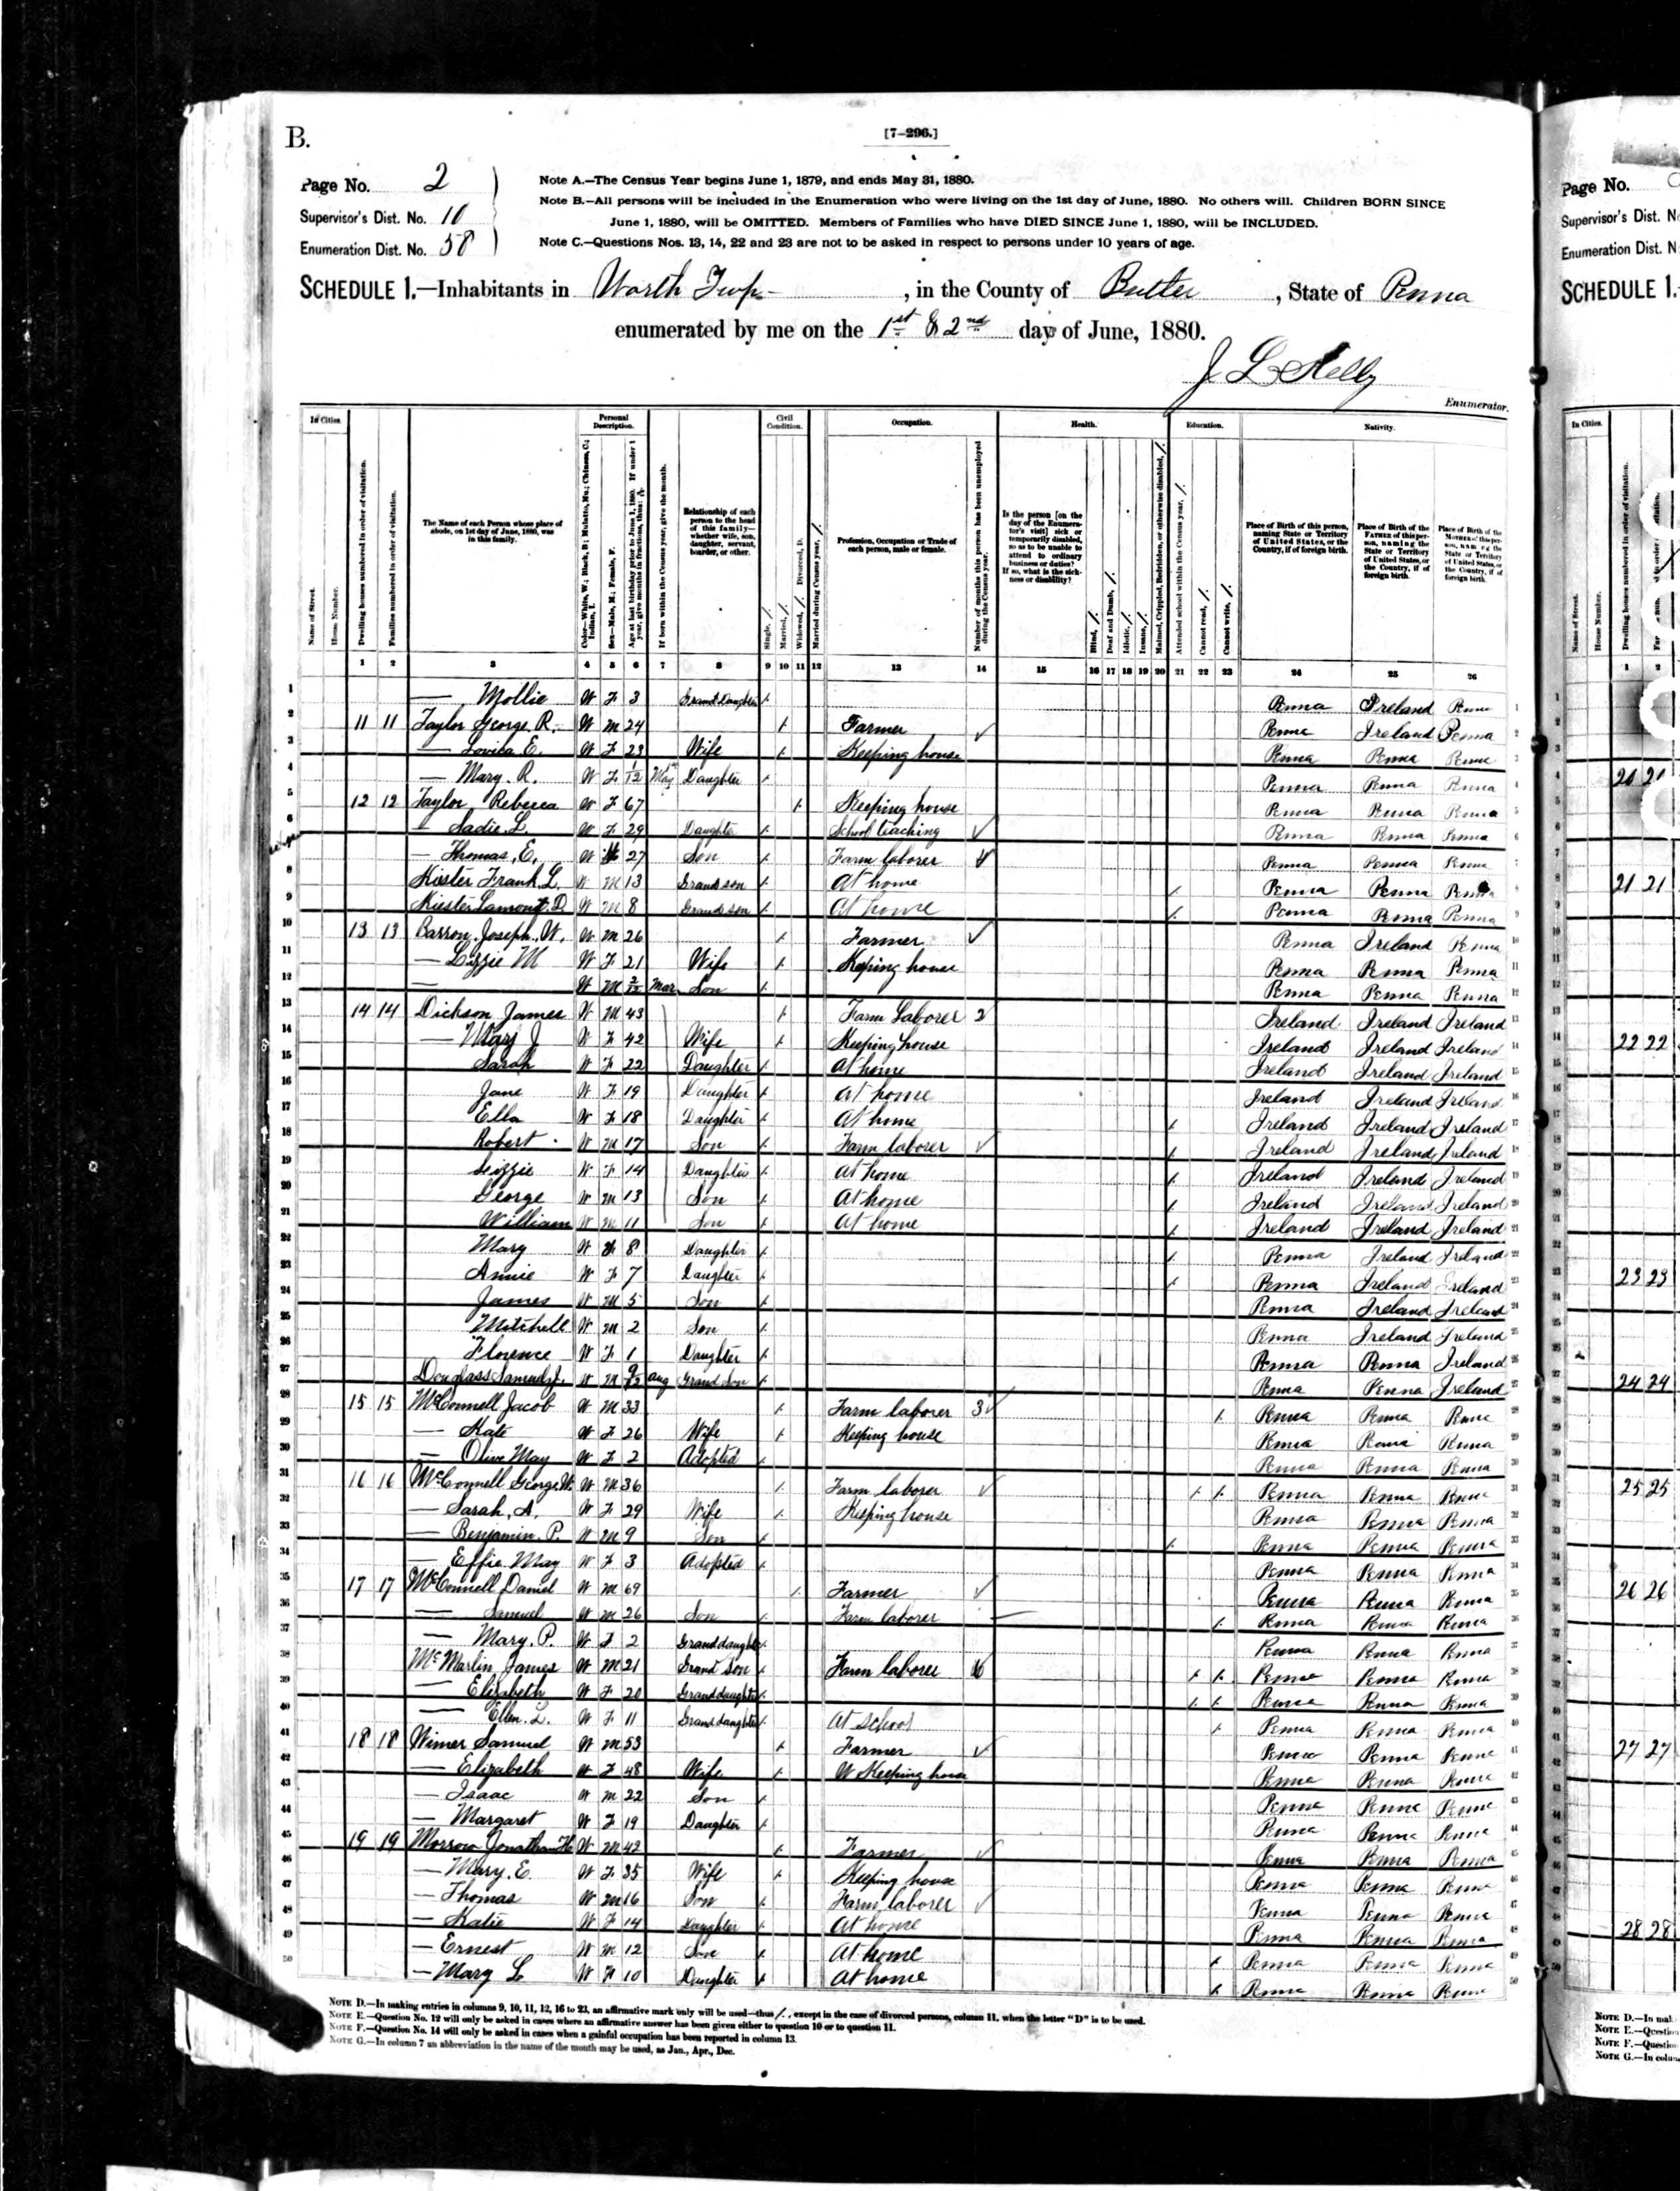 B.
[7-296.]
Page No. 2
Supervisor's Dist. No. 10
Enumeration Dist. No. 58
Note A.—The Census Year begins June 1, 1879, and ends May 31, 1880.
Note B.—All persons will be included in the Enumeration who were living on the 1st day of June, 1880. No others will. Children BORN SINCE
June 1, 1880, will be OMITTED. Members of Families who have DIED SINCE June 1, 1880, will be INCLUDED.
Note C.—Questions Nos. 13, 14, 22 and 23 are not to be asked in respect to persons under 10 years of age.
SCHEDULE 1.—Inhabitants in Worth Twp, in the County of Butler, State of Penna
enumerated by me on the 1st & 2nd days of June, 1880.
J L Kelly
Enumerator.
In Cities. Personal Description. Civil Condition. Occupation. Health. Education. Nativity.
1 2 3 4 5 6 7 8 9 10 11 12 13 14 15 16 17 18 19 20 21 22 23 24 25 26
1 — Mollie W F 3 Grand Daughter / Penna Ireland Penna
2 11 11 Taylor George R. W M 24 / Farmer Penna Ireland Penna
3 — Lovica E. W F 23 Wife / Keeping house Penna Penna Penna
4 — Mary. R. W F 1/12 May Daughter / Penna Penna Penna
5 12 12 Taylor Rebecca W F 67 / Keeping house Penna Penna Penna
6 — Sadie L. W F 29 Daughter / School teaching Penna Penna Penna
7 — Thomas, E. W M 27 Son / Farm laborer Penna Penna Penna
8 Kiester Frank L. W M 13 Grand son / At home / Penna Penna Penna
9 Kiester Lamont. D W M 8 Grand son / At home / Penna Penna Penna
10 13 13 Barron, Joseph, W. W M 26 / Farmer Penna Ireland Penna
11 — Lizzie M W F 21 Wife / Keeping house Penna Penna Penna
12 — W M 2/12 Mar. Son / Penna Penna Penna
13 14 14 Dickson James W M 43 / Farm Laborer 2 Ireland Ireland Ireland
14 — Mary J W F 42 Wife / Keeping house Ireland Ireland Ireland
15 Sarah W F 22 Daughter / At home Ireland Ireland Ireland
16 Jane W F 19 Daughter / At home Ireland Ireland Ireland
17 Ella W F 18 Daughter / At home / Ireland Ireland Ireland
18 Robert W M 17 Son / Farm laborer / Ireland Ireland Ireland
19 Lizzie W F 14 Daughter / At home / Ireland Ireland Ireland
20 George W M 13 Son / At home / Ireland Ireland Ireland
21 William W M 11 Son / At home / Ireland Ireland Ireland
22 Mary W F 8 Daughter / / Penna Ireland Ireland
23 Annie W F 7 Daughter / / Penna Ireland Ireland
24 James W M 5 Son / Penna Ireland Ireland
25 Mitchell W M 2 Son / Penna Ireland Ireland
26 Florence W F 1 Daughter / Penna Penna Ireland
27 Douglass Samuel J. W M 9/12 Aug Grand Son / Penna Penna Ireland
28 15 15 McConnell Jacob W M 33 / Farm laborer 3 / Penna Penna Penna
29 — Kate W F 26 Wife / Keeping house Penna Penna Penna
30 — Olive May W F 2 Adopted / Penna Penna Penna
31 16 16 McConnell George W. W M 36 / Farm laborer / / Penna Penna Penna
32 — Sarah, A. W F 29 Wife / Keeping house Penna Penna Penna
33 — Benjamin. P. W M 9 Son / / Penna Penna Penna
34 — Effie May W F 3 Adopted / Penna Penna Penna
35 17 17 McConnell Daniel W M 69 / Farmer Penna Penna Penna
36 — Samuel W M 26 Son / Farm laborer / Penna Penna Penna
37 — Mary. P. W F 2 Granddaughter / Penna Penna Penna
38 McMarlin James W M 21 Grand Son / Farm laborer 6 / / Penna Penna Penna
39 — Elizabeth W F 20 Granddaughter / / / Penna Penna Penna
40 — Ellen. L. W F 11 Granddaughter / At school / Penna Penna Penna
41 18 18 Wimer Samuel W M 53 / Farmer Penna Penna Penna
42 — Elizabeth W F 48 Wife / Keeping house Penna Penna Penna
43 — Isaac W M 22 Son / Penna Penna Penna
44 — Margaret W F 19 Daughter / Penna Penna Penna
45 19 19 Morrow Jonathan H W M 42 / Farmer Penna Penna Penna
46 — Mary. E. W F 35 Wife / Keeping house Penna Penna Penna
47 — Thomas W M 16 Son / Farm laborer Penna Penna Penna
48 — Katie W F 14 Daughter / At home Penna Penna Penna
49 — Ernest W M 12 Son / At home / Penna Penna Penna
50 — Mary L W F 10 Daughter / At home / Penna Penna Penna
NOTE D.—In making entries in columns 9, 10, 11, 12, 16 to 23, an affirmative mark only will be used—thus /, except in the case of divorced persons, column 11, when the letter "D" is to be used.
NOTE E.—Question No. 12 will only be asked in cases where an affirmative answer has been given either to question 10 or to question 11.
NOTE F.—Question No. 14 will only be asked in cases when a gainful occupation has been reported in column 13.
NOTE G.—In column 7 an abbreviation in the name of the month may be used, as Jan., Apr., Dec.
Page No.
Supervisor's Dist. N
Enumeration Dist. N
SCHEDULE 1.
In Cities.
20 21
21 21
22 22
23 23
24 24
25 25
26 26
27 27
28 28
NOTE D.—In mak
NOTE E.—Question
NOTE F.—Questio
NOTE G.—In colum